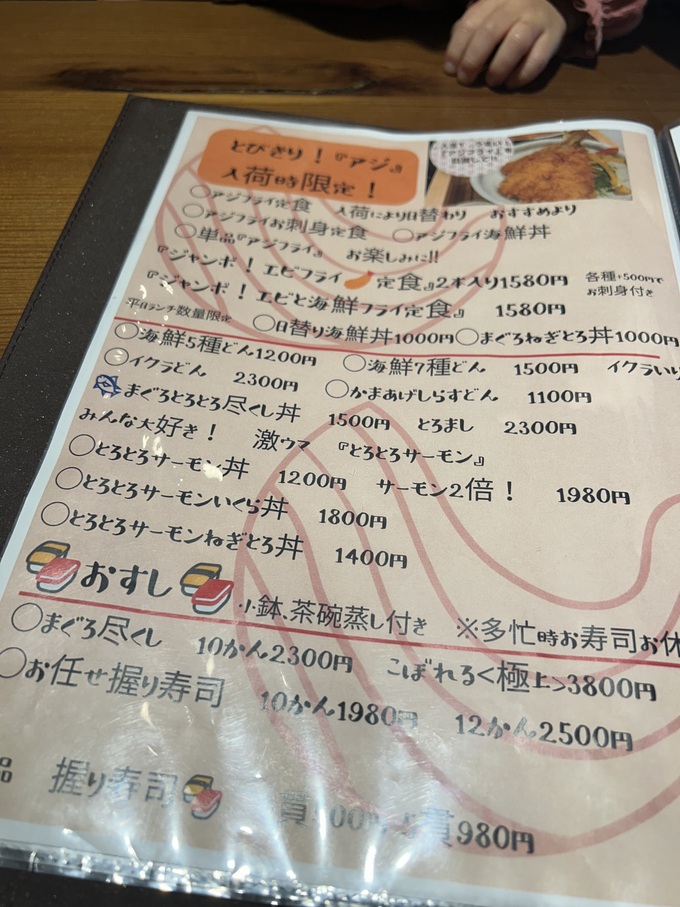 とびきり！『アジ』
入荷時限定！
〇アジフライ定食　入荷により日替わり　おすすめより
〇アジフライお刺身定食　〇アジフライ海鮮丼
〇単品『アジフライ』　お楽しみに!!
『ジャンボ！エビフライ定食』2本入り1580円　各種+500円でお刺身付き
『ジャンボ！エビと海鮮フライ定食』　1580円
平日ランチ数量限定　〇日替り海鮮丼1000円〇まぐろねぎとろ丼1000円
〇海鮮5種どん1200円　〇海鮮7種どん　1500円　イクラいり
〇イクラどん　2300円　〇かまあげしらすどん　1100円
まぐろとろとろ尽くし丼　1500円　とろまし　2300円
みんな大好き！　激ウマ　『とろとろサーモン』
〇とろとろサーモン丼　1200円　サーモン2倍！　1980円
〇とろとろサーモンいくら丼　1800円
〇とろとろサーモンねぎとろ丼　1400円
おすし　小鉢、茶碗蒸し付き　※多忙時お寿司お休
〇まぐろ尽くし　10かん2300円　こぼれる<極上>3800円
〇お任せ握り寿司　10かん1980円　12かん2500円
品　握り寿司　貫980円